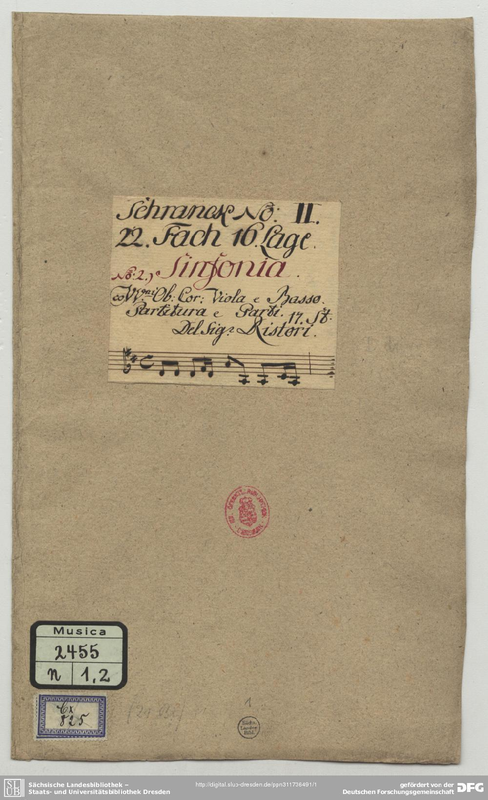 Schranck No: II.
22. Fach 16. Lage.
No: 2.) Sinfonia.
co VVni Ob: Cor: Viola e Basso.
Partitura e Parti. 17. St:
Del Sigr. Ristori.
Musica
2455
n 1,2
Cx
825
1
Sächs.
Landes-
Bibl.
Sächsische Landesbibliothek –
Staats- und Universitätsbibliothek Dresden
http://digital.slub-dresden.de/ppn311736481/1
gefördert von der
Deutschen Forschungsgemeinschaft
DFG